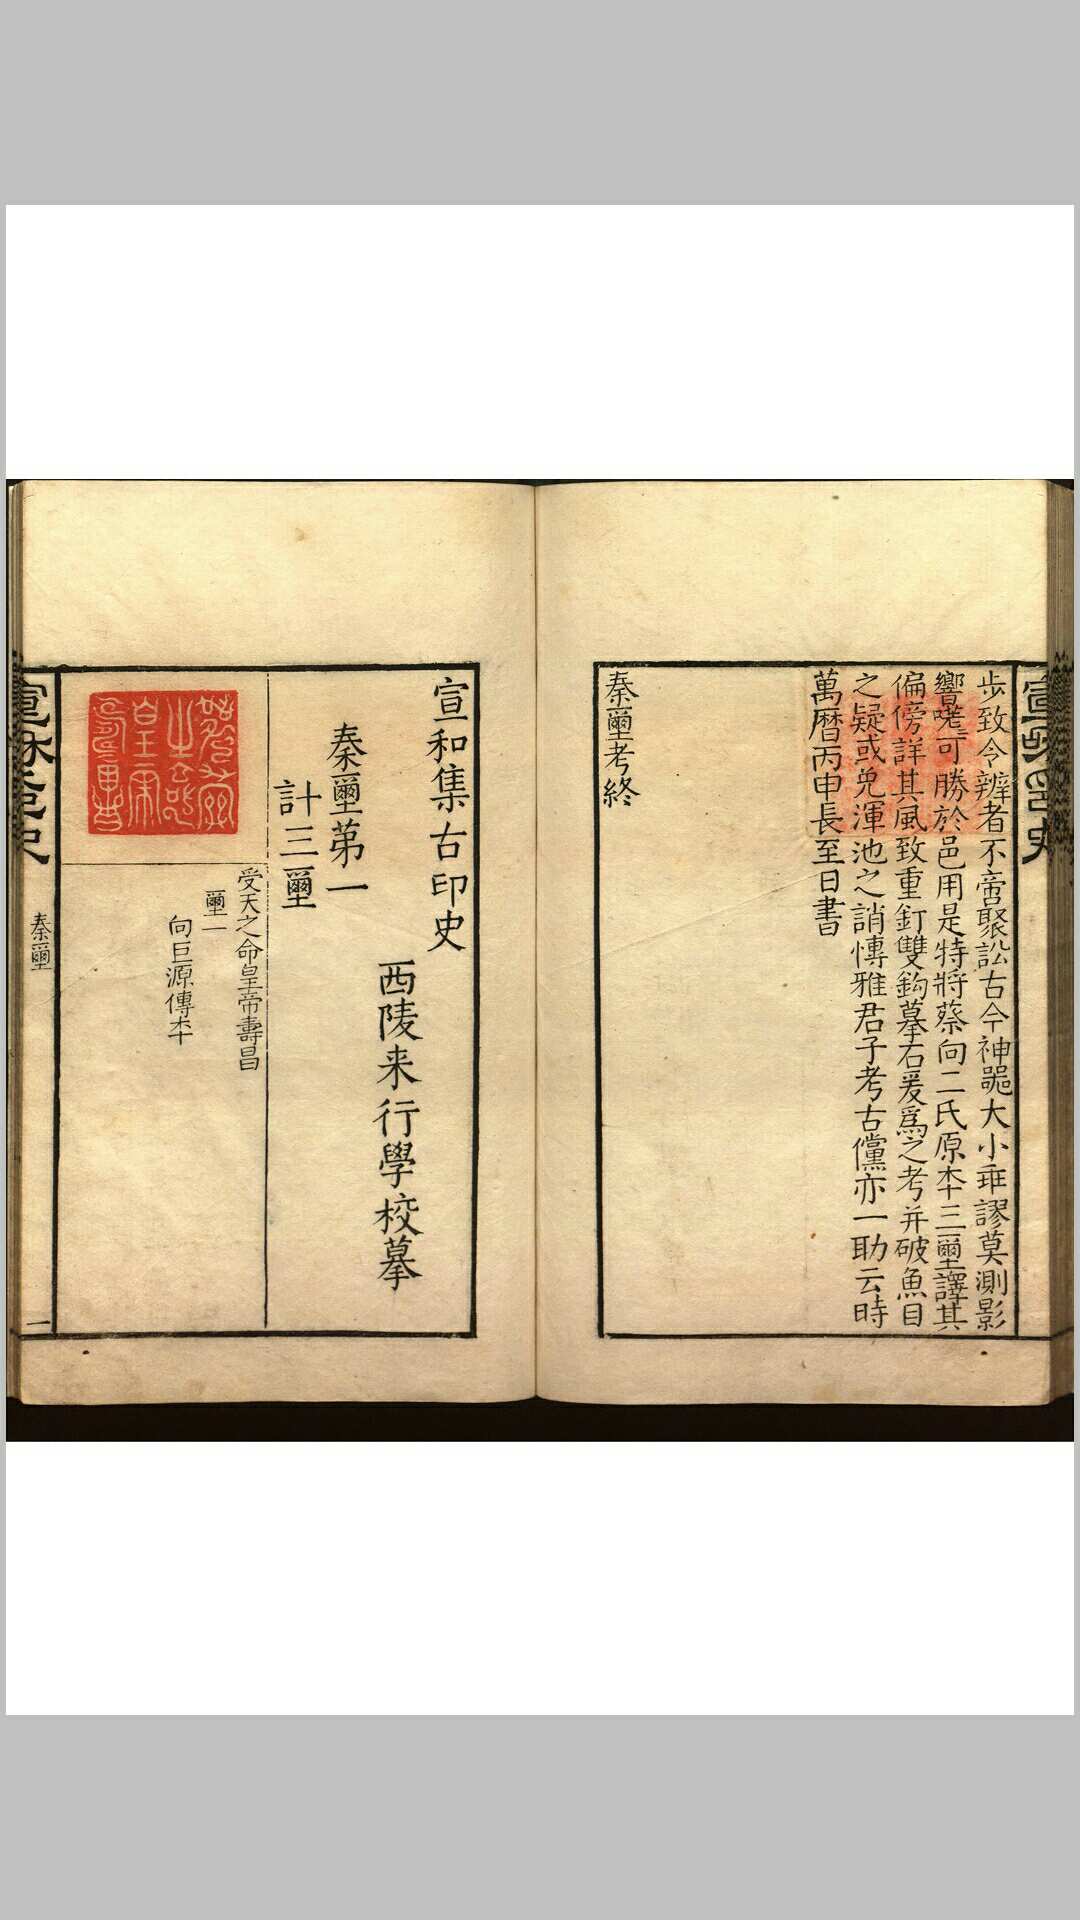 步致令辨者不啻聚訟古今神噐大小乖謬莫測影
響嘵嘵可勝於邑用是特將蔡向二氏原本三壐譯其
偏傍詳其風致重釘雙鈎摹右爰爲之考并破魚目
之疑或免渾池之誚愽雅君子考古儻亦一助云時
萬曆丙申長至日書
秦壐考終
宣和集古印史
西陵来行學校摹
秦壐第一
計三壐
受天之命皇帝壽昌
壐一
向巨源傳本
宣和印史
秦壐
一